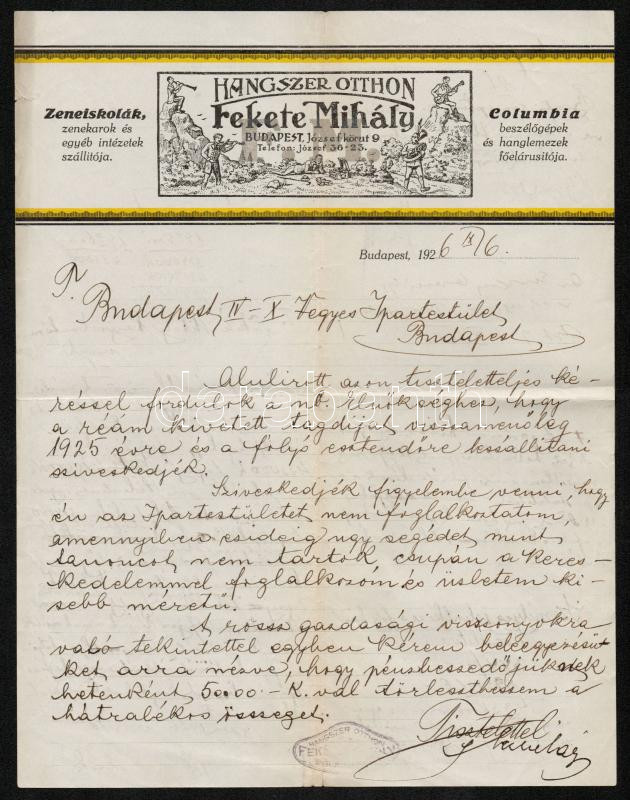 HANGSZER OTTHON
Fekete Mihály
BUDAPEST, József körut 9
Telefon: József 36-23.
Zeneiskolák,
zenekarok és
egyéb intézetek
szállitója.
Columbia
beszélőgépek
és hanglemezek
főelárusitója.
Budapest, 1926 IX/6.
T.
Budapest IV–X Vegyes Ipartestület
Budapest
Alulirott azon tiszteletteljes ké-
réssel fordulok a nt. Elnökséghez, hogy
a reám kivetett tagdijat visszamenőleg
1925 évre és a folyó esztendőre leszállitani
sziveskedjék.
Sziveskedjék figyelembe venni, hogy
én az Ipartestületet nem foglalkoztatom,
amennyiben ezideig ugy segédet mint
tanoncot nem tartok, csupán a keres-
kedelemmel foglalkozom és üzletem ki-
sebb méretű.
A rossz gazdasági viszonyokra
való tekintettel egyben kérem beleegyezésü-
ket arra nézve, hogy pénzbeszedőjüknek
hetenként 50.00.- K.val törleszthessem a
hátralékos összeget.
Tisztelettel
HANGSZER OTTHON
darabanth